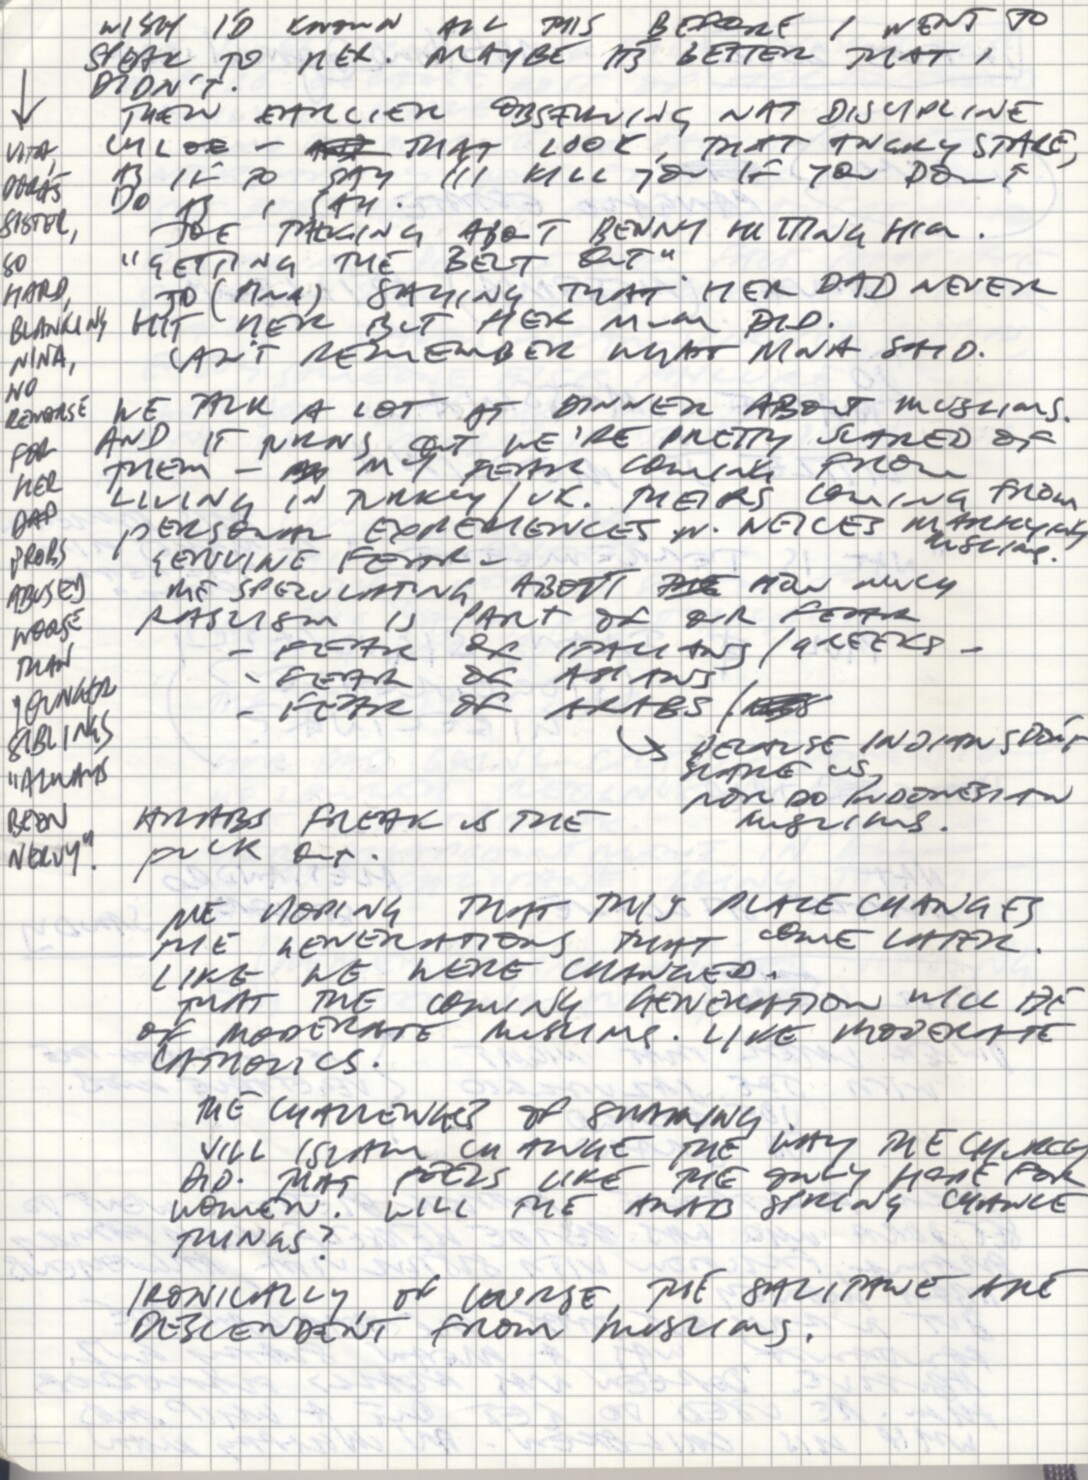 WISH I'D KNOWN ALL THIS BEFORE I WENT TO
SPEAK TO HER. MAYBE ITS BETTER THAT I
DIDN'T.
THEN EARLIER OBSERVING NAT DISCIPLINE
CHLOE - THAT LOOK, THAT ANGRY STARE,
AS IF TO SAY I'LL KILL YOU IF YOU DON'T
DO AS I SAY.
JOE TALKING ABOUT BENNY HITTING HIM.
"GETTING THE BELT OUT".
JO (NINA) SAYING THAT HER DAD NEVER
HIT HER BUT HER MUM DID.
CAN'T REMEMBER WHAT NINA SAID.
WE TALK A LOT AT DINNER ABOUT MUSLIMS.
AND IT TURNS OUT WE'RE PRETTY SCARED OF
THEM - MY FEAR COMING FROM
LIVING IN TURKEY/UK. THEIRS COMING FROM
PERSONAL EXPERIENCES W. NEICES MARRYING
MUSLIMS.
GENUINE FEAR -
ME SPECULATING ABOUT HOW MUCH
RACISM IS PART OF OUR FEAR
- FEAR OF ITALIANS/GREEKS -
- FEAR OF ASIANS
- FEAR OF ARABS /
BECAUSE INDIANS DON'T
SCARE US,
NOR DO INDONESIAN
MUSLIMS.
ARABS FREAK US THE
FUCK OUT.
ME HOPING THAT THIS PLACE CHANGES
THE GENERATIONS THAT COME LATER.
LIKE WE WERE CHANGED.
THAT THE COMING GENERATION WILL BE
OF MODERATE MUSLIMS. LIKE MODERATE
CATHOLICS.
THE CHALLENGES OF SHARING.
WILL ISLAM CHANGE THE WAY THE CHURCH
DID. THAT FEELS LIKE THE ONLY HOPE FOR
WOMEN. WILL THE ARAB SPRING CHANGE
THINGS?
IRONICALLY OF COURSE, THE SALIPANE ARE
DESCENDENT FROM MUSLIMS.
VITA,
DORA'S
SISTER,
SO
HARD,
BLANKING
NINA,
NO
REMORSE
FOR
HER
DAD
PROBS
ABUSED
WORSE
THAN
YOUNGER
SIBLINGS
"ALWAYS
BEEN
NERVY".